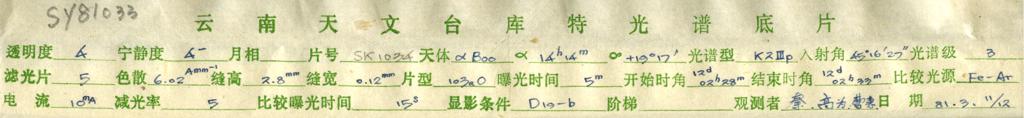 SY81033
云南天文台库特光谱底片
透明度 4 宁静度 4⁻ 月相 片号 SK1034 天体 α Boo α 14ʰ14ᵐ δ +19°17′ 光谱型 K2Ⅲp 入射角 45°16′27″ 光谱级 3
滤光片 5 色散 6.02 Åmm⁻¹ 缝高 2.8ᵐᵐ 缝宽 0.12ᵐᵐ 片型 103aO 曝光时间 5ᵐ 开始时角 12ᵈ 02ʰ28ᵐ 结束时角 12ᵈ 02ʰ33ᵐ 比较光源 Fe-Ar
电流 10ᵐᴬ 减光率 5 比较曝光时间 15ˢ 显影条件 D19-b 阶梯 观测者 日期 81.3.11/12